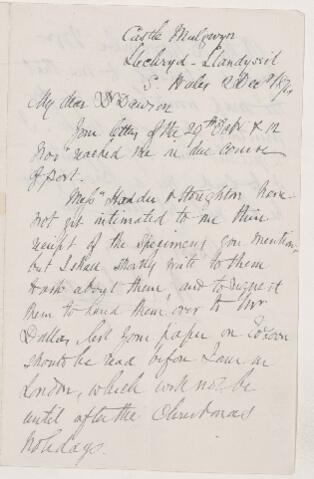 Castle Malgwyn
Llechryd - Llandyssil
S. Wales 2 Decr 1874
My dear Dr Dawson
Your letters of the 29th Octr & 12
Novr reached me in due course
of post.
Messrs Hodder & Stoughton have
not yet intimated to me their
receipt of the specimens you mention,
but I shall shortly write to them
to ask about them, and to suggest
them to hand them over to Mr
Dallas, lest your paper on Eozoon
should be read before I am in
London, which will not be
until after the Christmas
holidays.